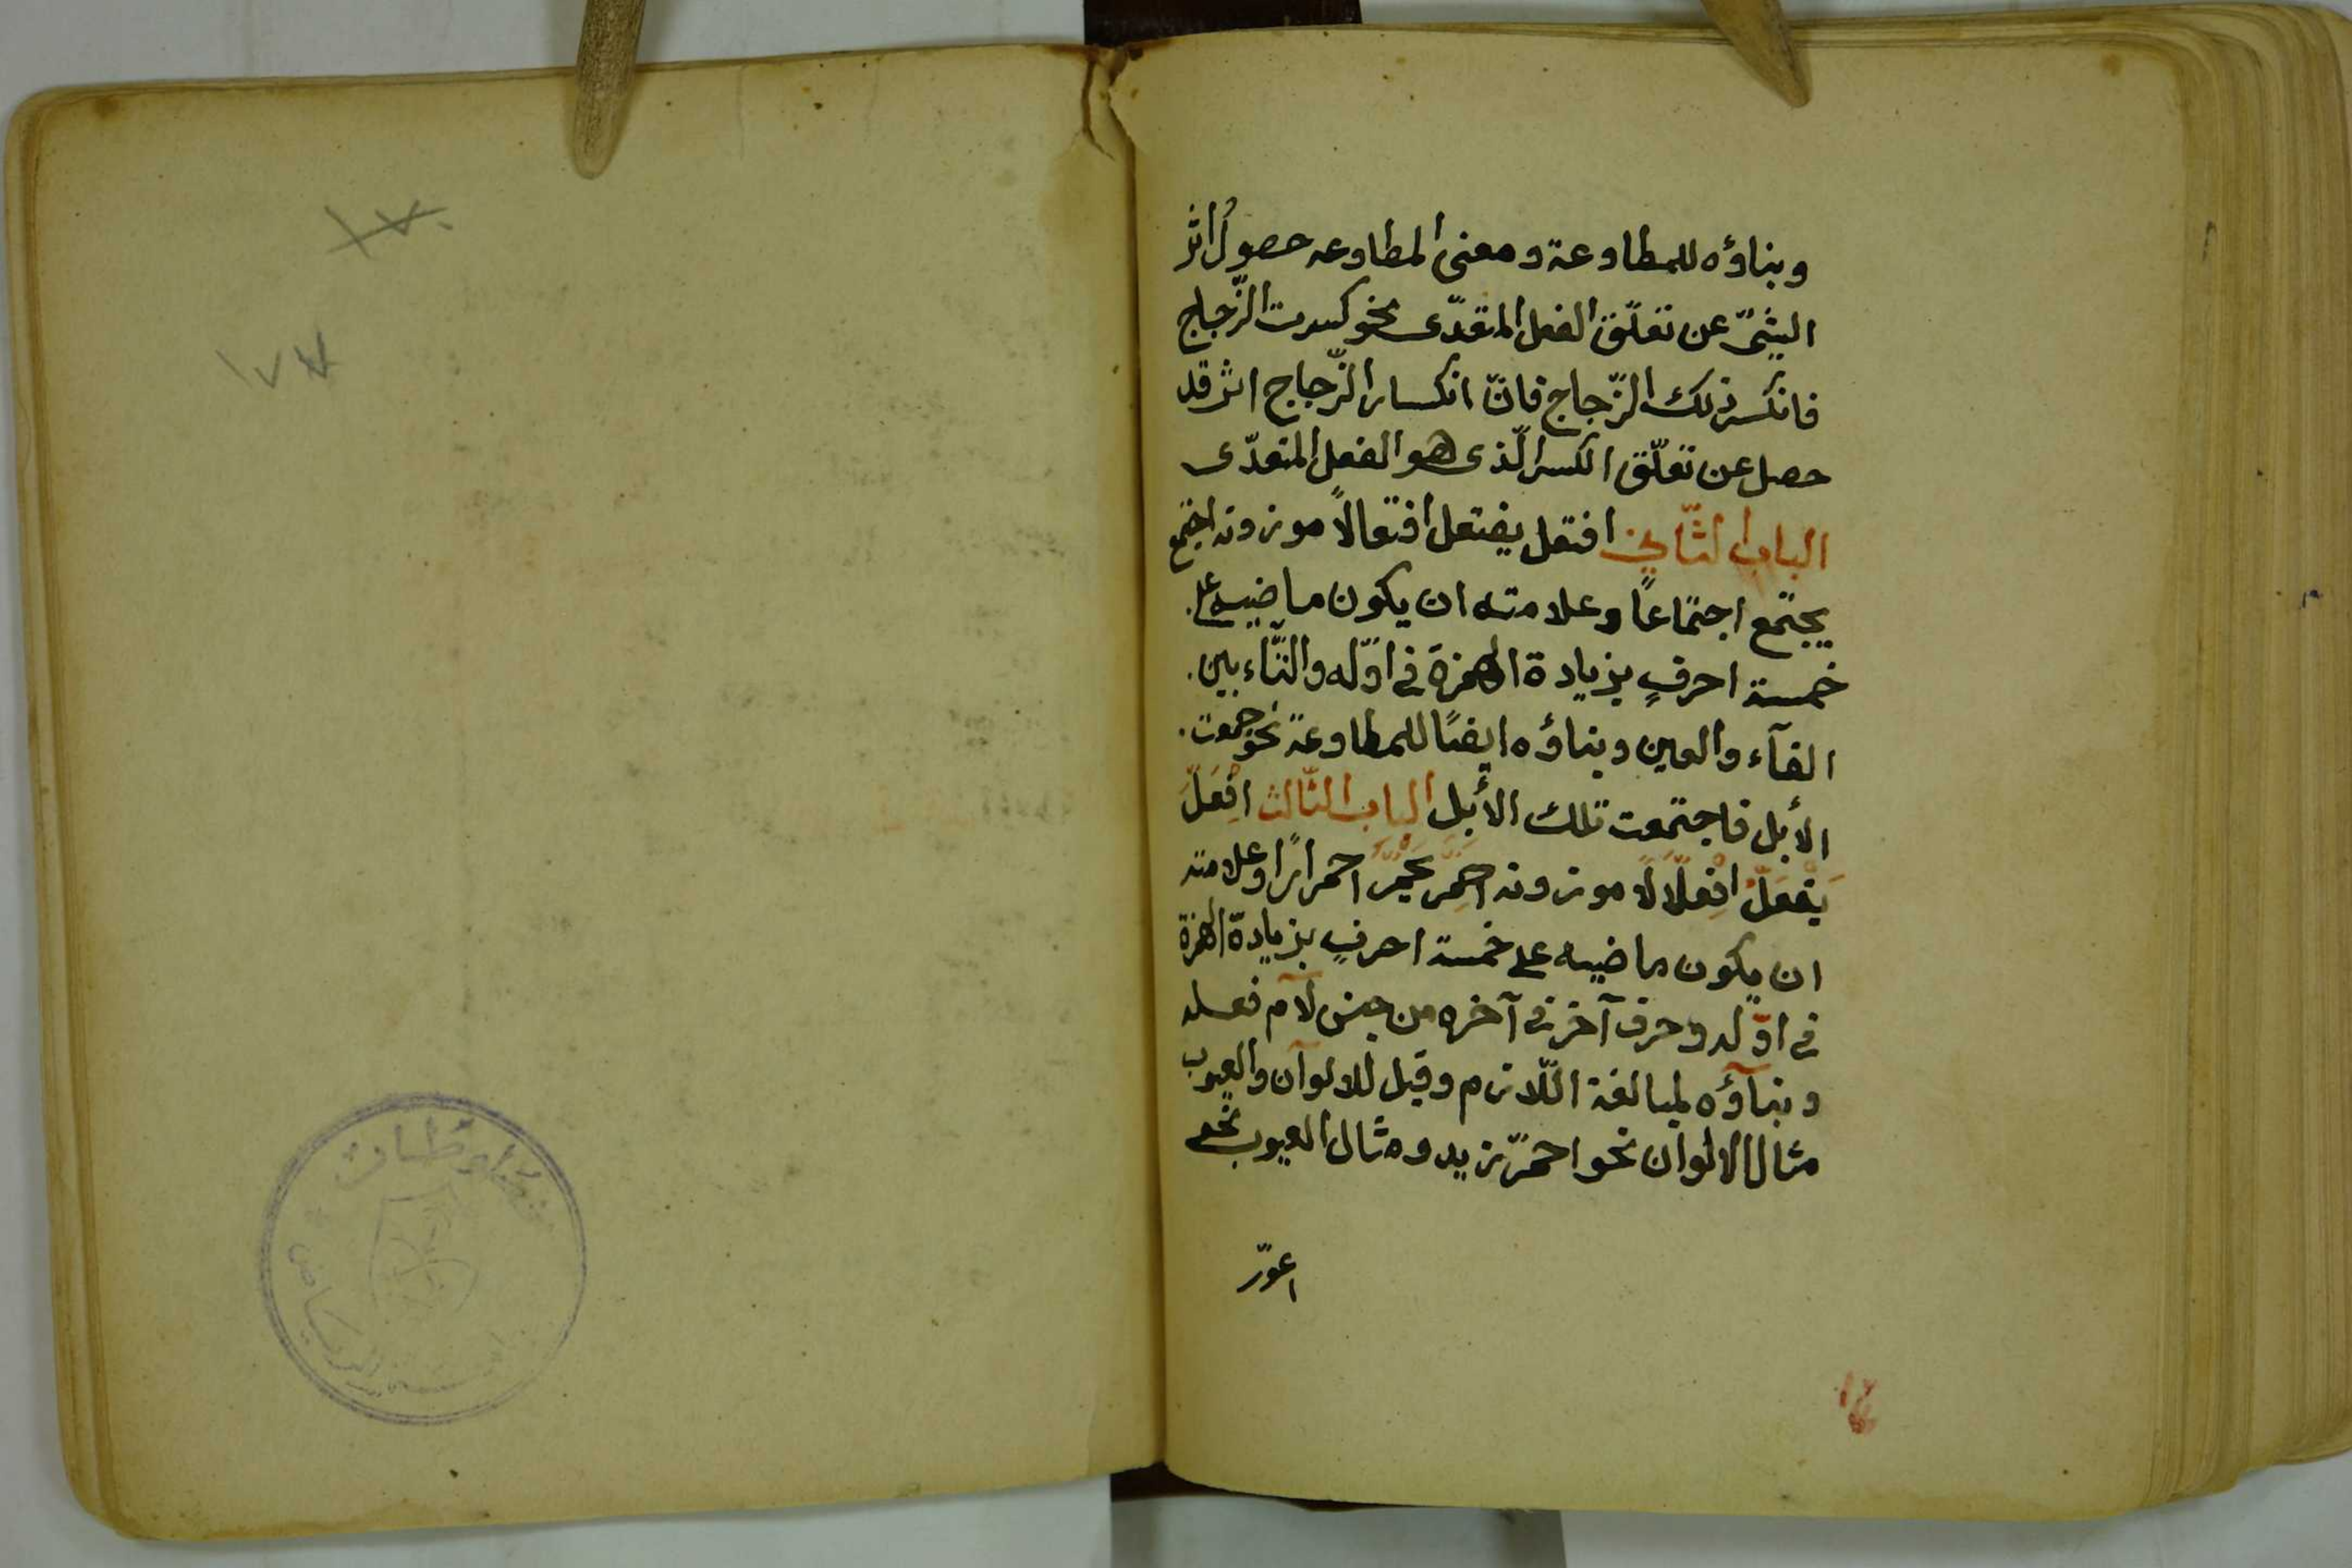 وبناؤه للمطاوعة ومعنى المطاوعه حصول اثر
الشئ عن تعلّق الفعل المتعدّى نحو كسرت الزّجاج
فانكسر ذلك الزّجاج فانّ انكسار الزّجاج اثر قد
حصل عن تعلّق الكسر الّذى هو الفعل المتعدّى
الباب الثّاني افتعل يفتعل افتعالاً موزونه اجتمع
يجتمع اجتماعاً وعلامته ان يكون ماضيه على
خمسة احرفٍ بزيادة الهمزة فى اوّله والتّاء بين
الفآء والعين وبناؤه ايضًا للمطاوعة نحو جمعت
الأبل فاجتمعت تلك الأبل الباب الثّالث افْعَلَّ
يَفْعَلُّ افْعِلَالًا موزونه احمَرَّ يحمَرُّ احمرارًا وعلامته
ان يكون ماضيه على خمسة احرفٍ بزيادة الهمزة
فى اوّله وحرف آخر فى آخره من جنس لآم فعله
وبنآؤه لمبالغة اللّازم وقيل للالوآن والعيوب
مثال الالوان نحو احمرّ زيد ومثال العيوب نحو
اعورّ
١٧٠
١٧٧
مخطوطات
الرياض